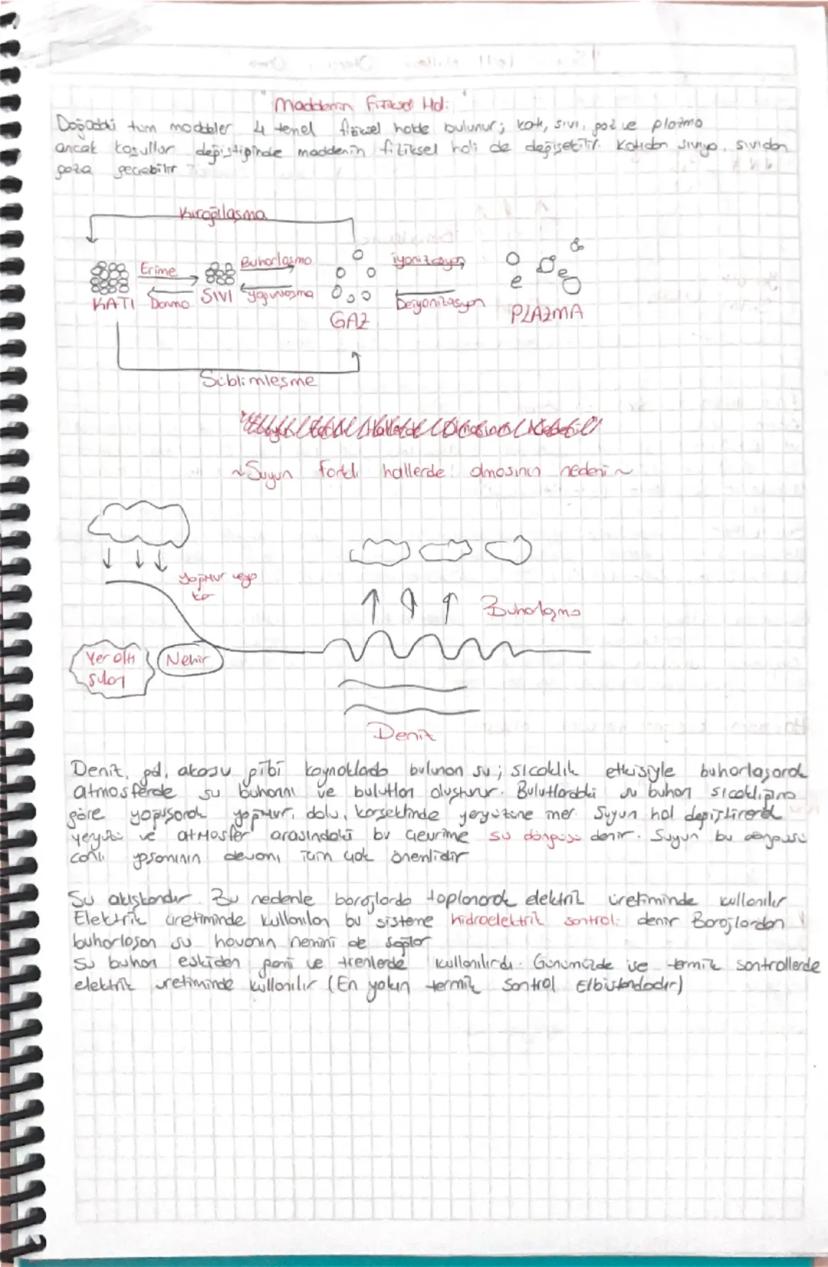 "Maddenin Fiziksel Hali
Doğadaki tüm maddeler 4 temel fiziksel halde bulunur; katı, sıvı, gaz ve plazma
ancak koşullar değiştiğinde maddenin fiziksel hali de değişebilir. Katıdan sıvıya, sıvıdan
gaza geçebilir
Kırağılaşma
Erime
Buharlaşma
iyonizasyon
e
e
KATI
Donma
SIVI
Yoğunlaşma
GAZ
Deiyonizasyon
PLAZMA
Süblimleşme
~Suyun farklı hallerde olmasının nedeni~
yağmur veya
kar
Buharlaşma
Yer altı
suları
Nehir
Deniz
Deniz, göl, akarsu gibi kaynaklarda bulunan su; sıcaklık etkisiyle buharlaşarak
atmosferde su buharını ve bulutları oluşturur. Bulutlardaki su buharı sıcaklığına
göre yoğuşarak yağmur, dolu, kar şeklinde yeryüzüne iner. Suyun hal değiştirerek
yeryüzü ve atmosfer arasındaki bu çevrime su döngüsü denir. Suyun bu döngüsü
canlı yaşamının devamı için çok önemlidir
Su akışkandır. Bu nedenle barajlarda toplanarak elektrik üretiminde kullanılır
Elektrik üretiminde kullanılan bu sisteme hidroelektrik santrali denir Barajlardan
buharlaşan su havanın nemini de sağlar
Su buharı eskiden gemi ve trenlerde kullanılırdı. Günümüzde ise termik santrallerde
elektrik üretiminde kullanılır (En yakın termik santral Elbistandadır)